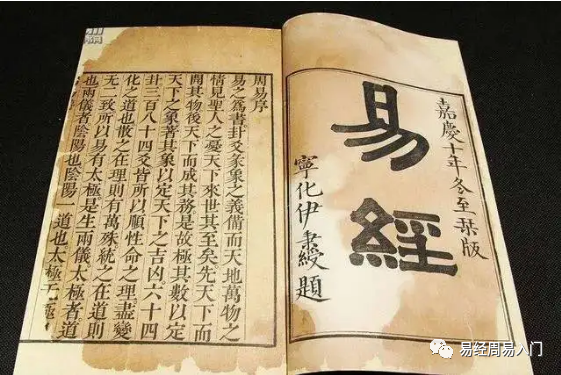 嘉慶十年冬至栞版
易經
寧化伊秉綬題
周易序
易之爲書卦爻彖象之義備而天地萬物之
情見聖人之憂天下來世其至矣先天下而
開其物後天下而成其務是故極其數以定
天下之象著其象以定天下之吉凶六十四
卦三百八十四爻皆所以順性命之理盡變
化之道也散之在理則有萬殊統之在道則
无二致所以易有太極是生兩儀太極者道
也兩儀者陰陽也陰陽一道也太極无極
易经周易入门